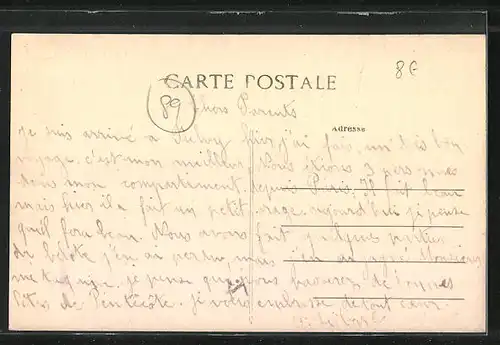 8€
CARTE POSTALE
89
Chers Parents
Adresse
Je suis arrivé à hier, j'ai fait un très bon
voyage. c'est mon meilleur. Nous étions 3 personnes
dans mon compartiment depuis Paris. Il fait beau
mais hier il a fait un petit orage. aujourd'hui je pense
qu'il fera beau. Nous avons fait quelques parties
de belote j'en ai perdu mais j'en ai gagné. Monsieur
me taquine. je pense que vous passerez de bonnes
fêtes de Pentecôte. je vous embrasse de tout cœur